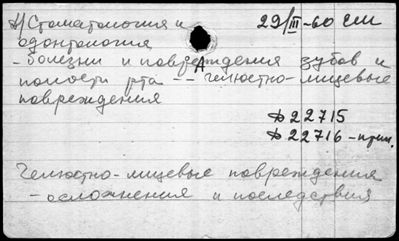 1) Стоматология и 29/III-60 см
одонтология
- болезни и повреждения зубов и
полости рта -- челюстно-лицевые
повреждения
Д 22715
Д 22716 - прим.
Челюстно-лицевые повреждения
- осложнения и последствия